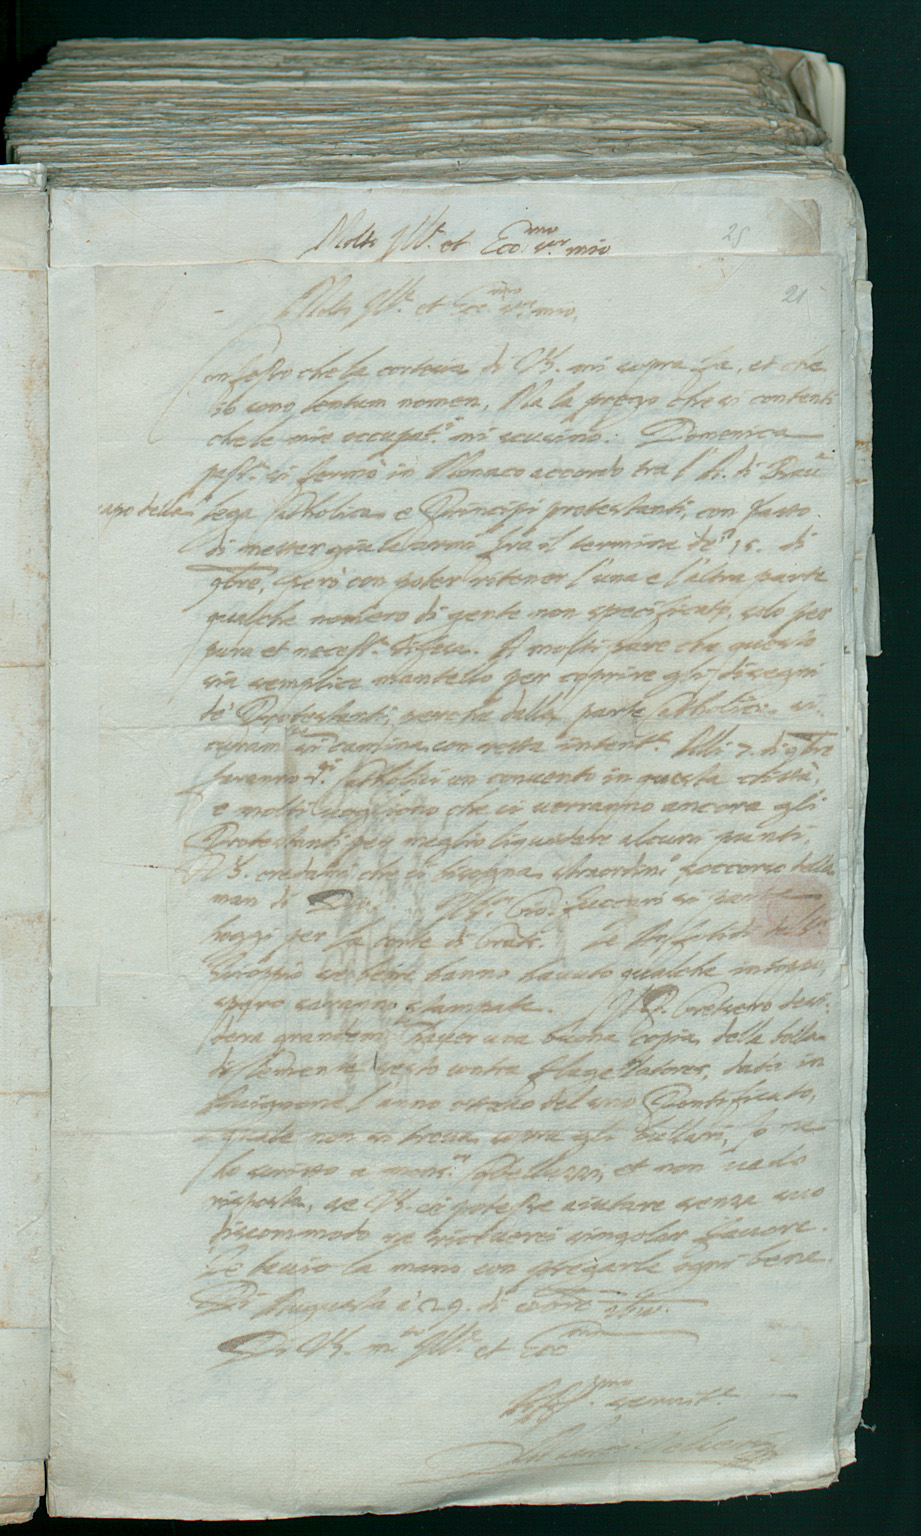 Molto Ill.e et Ecc.mo s.or mio
25
21
Molto Ill.e et Ecc.mo s.or mio,
Confesso che la cortesia di VS. mi sopra fa, et che
io sono tentum nomen, Ma la prego che si contenti
che le mie occupat.i mi scusino. Domenica
pass.a si fermò in Monaco accordo tra l' A. di Bau.a
capo della lega Catholica e Principi protestanti, con patto
di metter giù le armi fra il termine de' 15. di
9bre, però con poter ritener l'una e l'altra parte
qualche numero di gente non specificato, solo per
pura et necess.a difesa. A molti pare che questo
sia semplice mantello per coprire gli disegni
de' Protestanti, perché dalla parte Catholica si-
curam.te si camina con retta intent.e Alli 7. di 9bre
faranno gli Catholici un convento in questa città,
e molti vogliono che ci verranno ancora gli
Protestanti per meglio liquidare alcuni punti,
VS. credami che ci bisogna straordin.o soccorso della
man di Dio. Gio:
hoggi per la corte di
hanno havuto qualche intoppo,
spero saranno stampate. Il P. Gretsero desi-
dera grandem.te haver una buona copia della bolla
di Clemente sesto contra flagellatores, data in
Avignone l'anno ottavo del suo Pontificato,
quale non si trova sopra gli bullari, Io ne
ho scritto a mons.r et non vedo
risposta, se VS. ci potesse aiutare senza suo
discommodo ne riceverei singolar favore.
Le bacio la mano con pregarle ogni bene.
Di Augusta à 29. di 8bre
Di VS. m.to Ill.e et Ecc.ma
Aff.mo servit.e